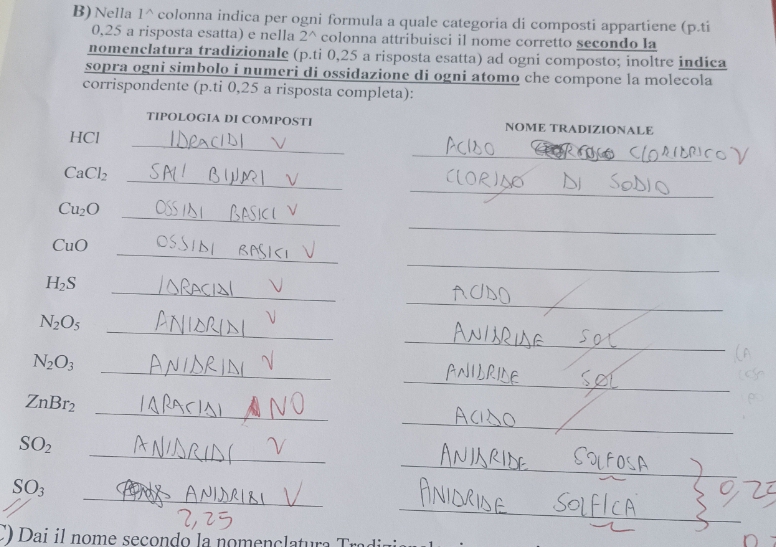 B) Nella 1^ colonna indica per ogni formula a quale categoria di composti appartiene (p.ti
0,25 a risposta esatta) e nella 2^ colonna attribuisci il nome corretto secondo la
nomenclatura tradizionale (p.ti 0,25 a risposta esatta) ad ogni composto; inoltre indica
sopra ogni simbolo i numeri di ossidazione di ogni atomo che compone la molecola
corrispondente (p.ti 0,25 a risposta completa):
TIPOLOGIA DI COMPOSTI NOME TRADIZIONALE
HCl IDRACIDI V ACIDO CLORIDRICO V
CaCl₂ SALI BINARI V CLORIDO DI SODIO
Cu₂O OSSIDI BASICI V
CuO OSSIDI BASICI V
H₂S IDRACIDI V ACIDO
N₂O₅ ANIDRIDI V ANIDRIDE SOL
N₂O₃ ANIDRIDI V ANIDRIDE SOL
ZnBr₂ IDRACIDI NO ACIDO
SO₂ ANIDRIDI V ANIDRIDE SOLFOSA
SO₃ ANIDRIDI V ANIDRIDE SOLFICA 0,25
2,25
C) Dai il nome secondo la nomenclatura